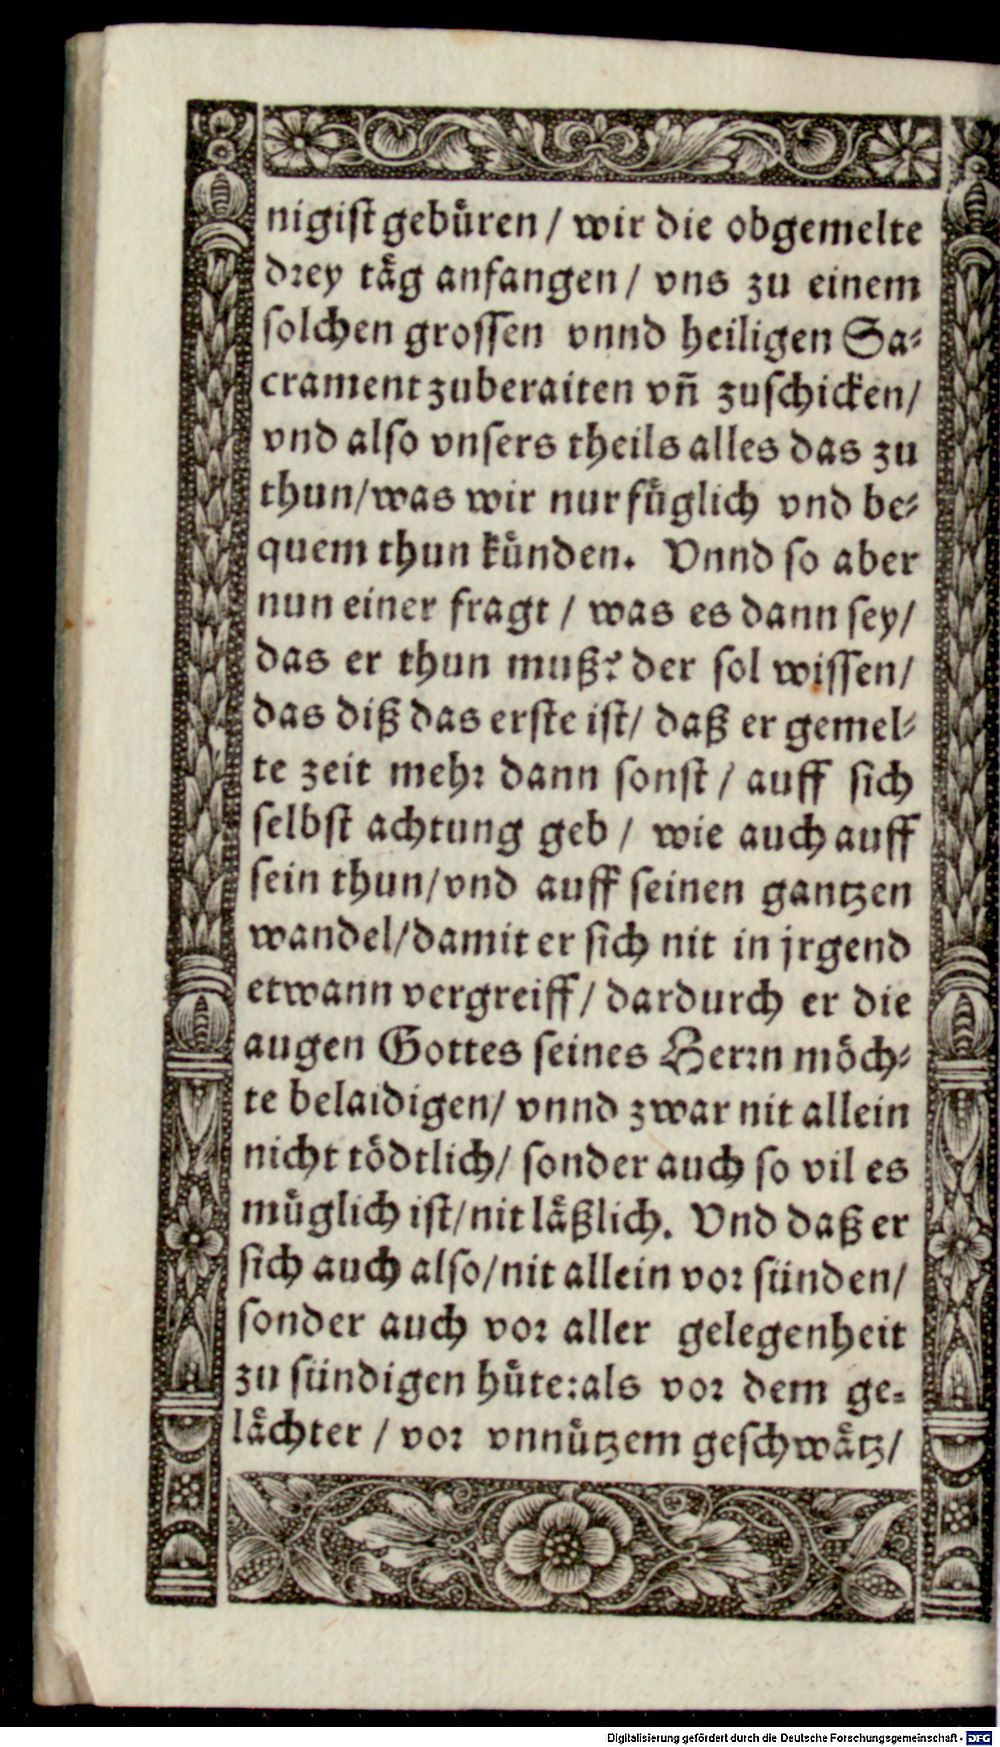 nigist gebuͤren / wir die obgemelte
drey taͤg anfangen / vns zu einem
solchen grossen vnnd heiligen Sa⸗
crament zuberaiten vñ zuschicken /
vnd also vnsers theils alles das zu
thun / was wir nur fuͤglich vnd be⸗
quem thun kuͤnden. Vnnd so aber
nun einer fragt / was es dann sey /
das er thun muß? der sol wissen /
das diß das erste ist / daß er gemel⸗
te zeit mehr dann sonst / auff sich
selbst achtung geb / wie auch auff
sein thun / vnd auff seinen gantzen
wandel / damit er sich nit in jrgend
etwann vergreiff / dardurch er die
augen Gottes seines Herrn moͤch⸗
te belaidigen / vnnd zwar nit allein
nicht toͤdtlich / sonder auch so vil es
muͤglich ist / nit laͤßlich. Vnd daß er
sich auch also / nit allein vor sünden /
sonder auch vor aller gelegenheit
zu sündigen huͤte: als vor dem ge⸗
laͤchter / vor vnnuͤtzem geschwaͤtz /
Digitalisierung gefördert durch die Deutsche Forschungsgemeinschaft - DFG